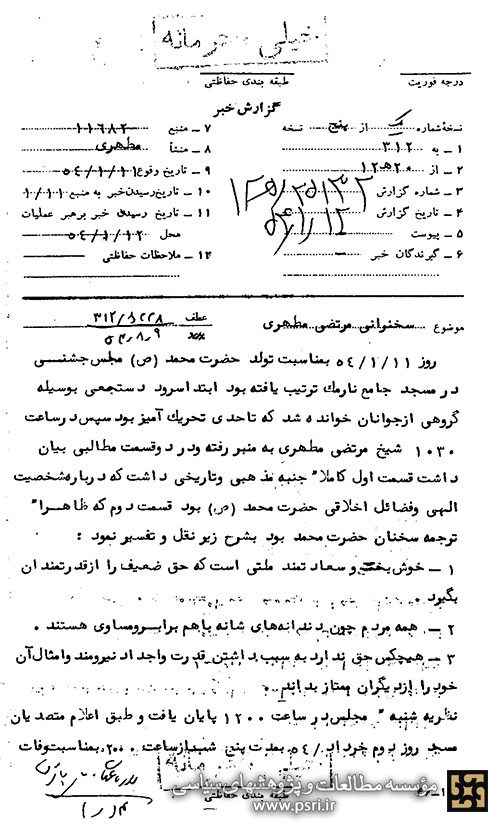 خیلی محرمانه
درجه فوریت
طبقه بندی حفاظتی
گزارش خبر
نسخهٔ شماره یک از پنج نسخه
۱ ـ به ۳۱۲
۲ ـ از ۲۰ ه ۱۲
۳ ـ شماره گزارش
۴ ـ تاریخ گزارش
۵ ـ پیوست
۶ ـ گیرندگان خبر
۷ ـ منبع ۱۱۶۸۲
۸ ـ منشأ مطهری
۹ ـ تاریخ وقوع ۵۴/۱/۱۱
۱۰ ـ تاریخ رسیدن خبر به منبع ۱/۱۱
۱۱ ـ تاریخ رسیدن خبر برهبر عملیات
محل ۵۴/۱/۱۲
۱۲ ـ ملاحظات حفاظتی
موضوع سخنرانی مرتضی مطهری
عطف ۳۱۲/۸۲۲۸
۵۳,۸,۹
روز ۵۴/۱/۱۱ بمناسبت تولد حضرت محمد (ص) مجلس جشنی
در مسجد جامع نارمک ترتیب یافته بود ابتدا سرود دستجمعی بوسیله
گروهی ازجوانان خوانده شد که تاحدی تحریک آمیز بود سپس درساعت
۱۰۳۰ شیخ مرتضی مطهری به منبر رفته ودر دوقسمت مطالبی بیان
داشت قسمت اول کاملا" جنبه مذهبی وتاریخی داشت که درباره شخصیت
الهی وفضائل اخلاقی حضرت محمد (ص) بود قسمت دوم که ظاهرا"
ترجمه سخنان حضرت محمد بود بشرح زیر نقل و تفسیر نمود :
۱ ـ خوش بخت و سعادتمند ملتی است که حق ضعیف را ازقدرتمندان
بگیرد .
۲ ـ همه مردم چون دندانه‌های شانه باهم برابرومساوی هستند .
۳ ـ هیچکس حق ندارد به سبب داشتن قدرت واجداد نیرومند وامثال آن
خود را ازدیگران ممتاز بداند .
نظریه شنبه " مجلس در ساعت ۱۲۰۰ پایان یافت و طبق اعلام متصدیان
مسجد روز دوم خرداد/۵۴ بمدت پنج شب ازساعت ۲۰۰۰ بمناسبت وفات
طبقه بندی حفاظتی
مؤسسه مطالعات و پژوهشهای سیاسی
www.psri.ir